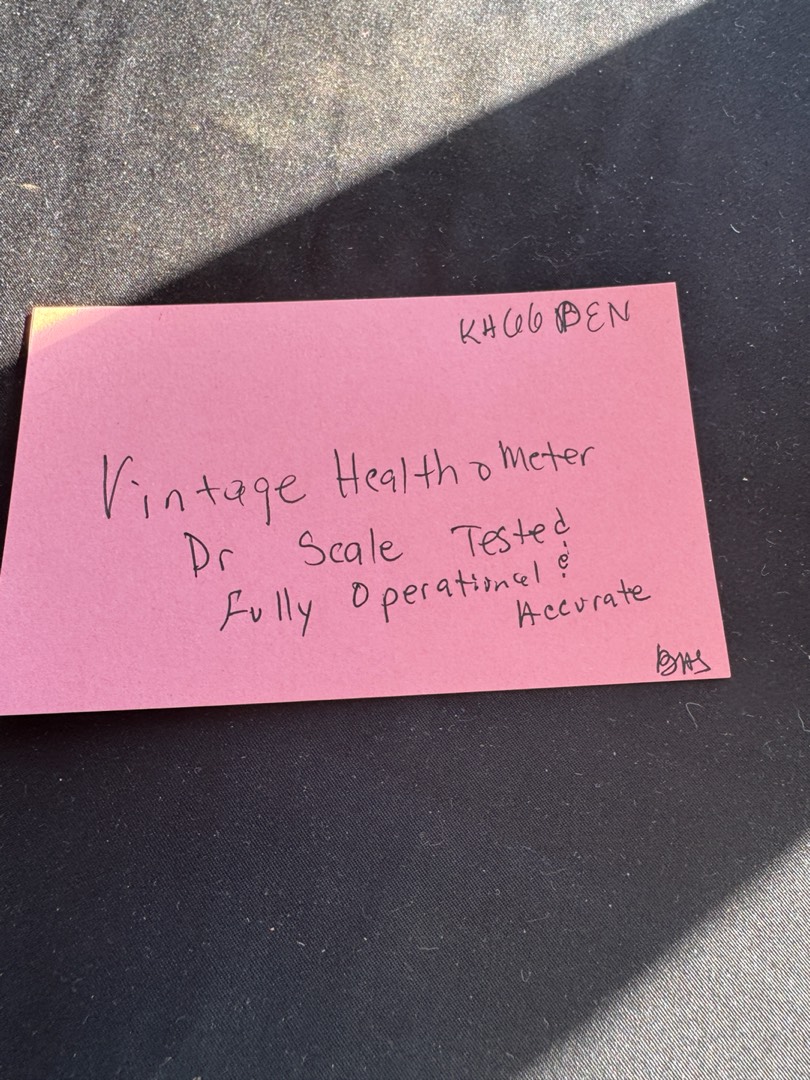 KH66 BEN
Vintage Health o Meter
Dr Scale Tested
Fully Operational &
Accurate